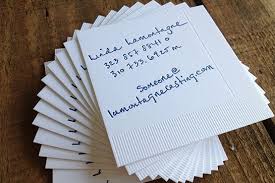 Linda Lamontagne
323 857 8841 o
310 733.6925 m
someone@
lamontagnecasting.com